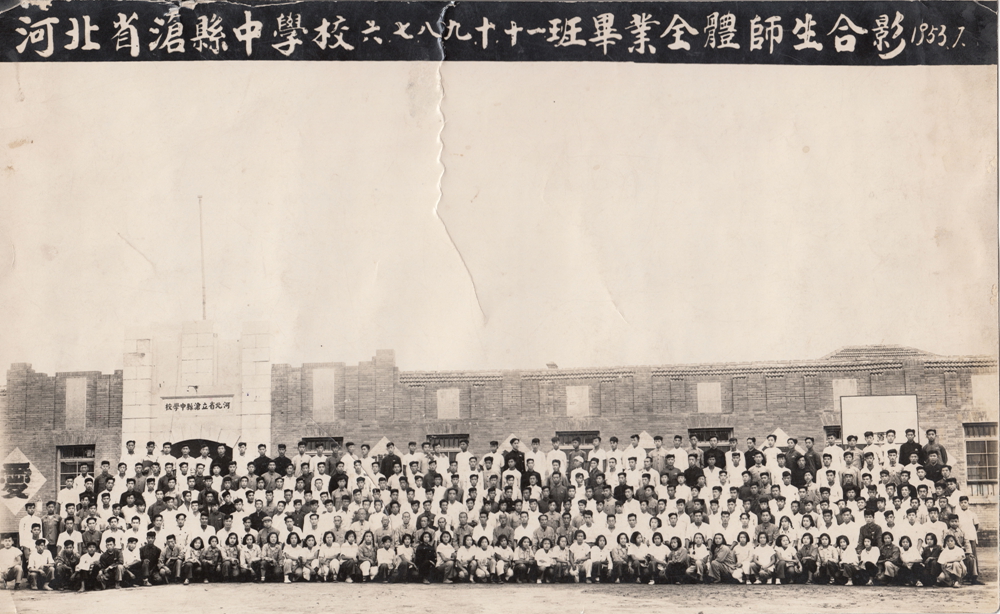 河北省滄縣中學校六.七.八.九.十.十一班畢業全體師生合影 1953.7.
校學中縣滄立省北河
愛